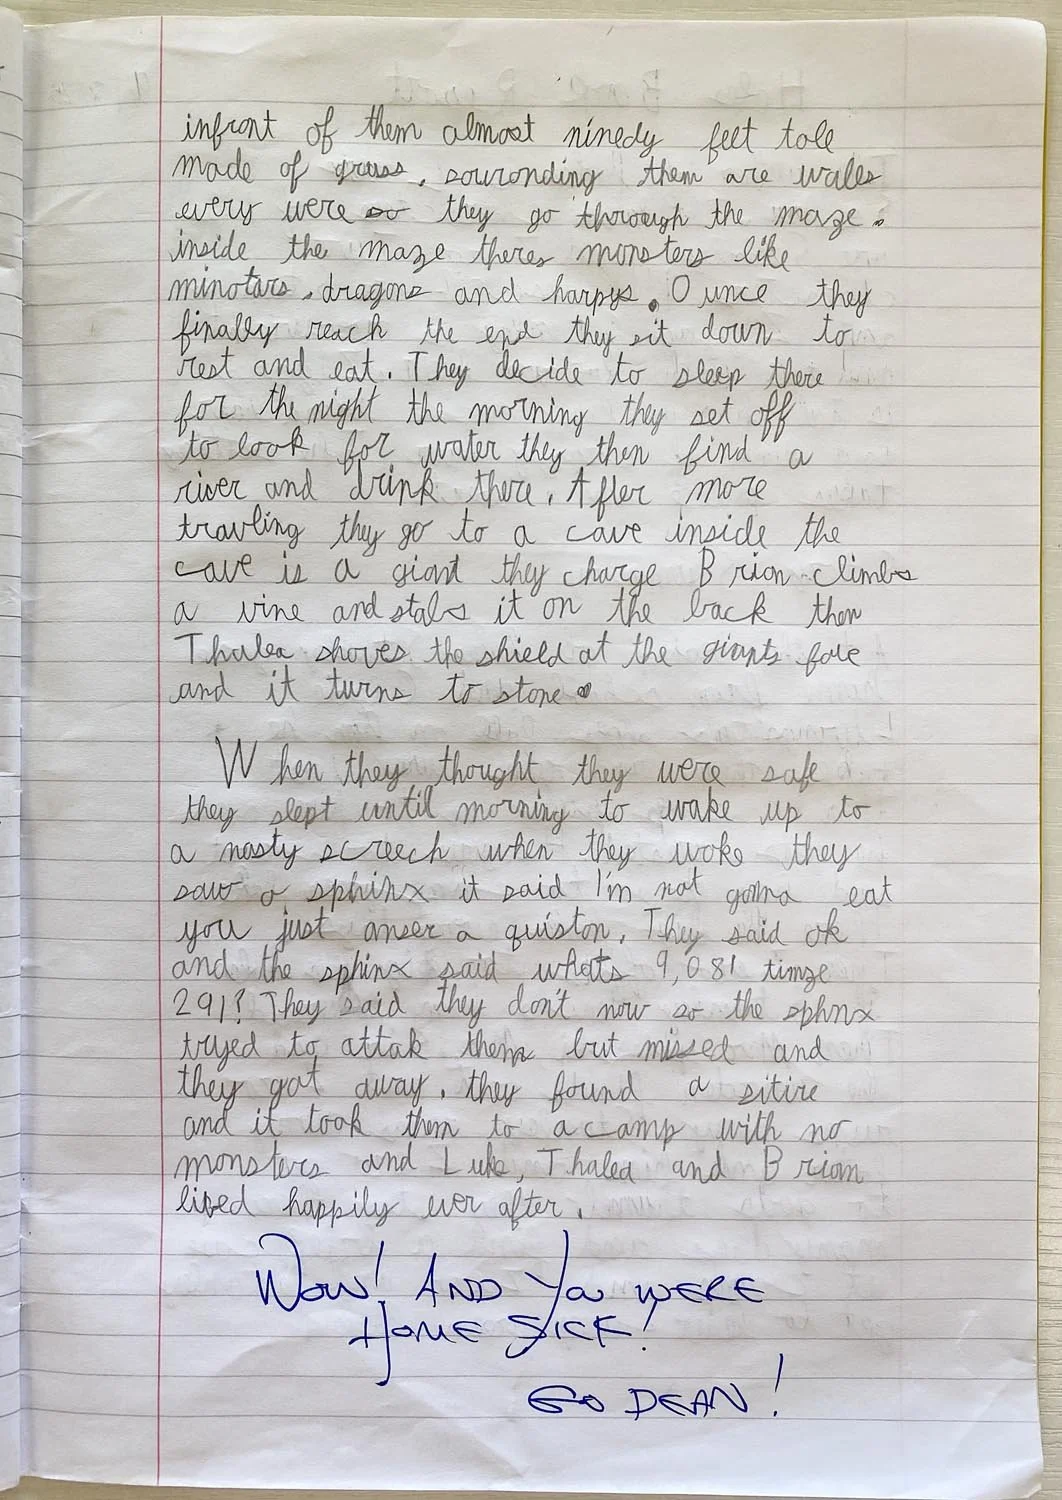 infront of them almost ninedy feet tole
made of grass. souronding them are wales
every were so they go through the maze.
inside the maze theres monsters like
minotars, dragons and harpys. Ounce they
finally reach the end they sit down to
rest and eat. They decide to sleep there
for the night the morning they set off
to look for water they then find a
river and drink there. After more
travling they go to a cave inside the
cave is a giant they charge Brion climbs
a vine and stabs it on the back then
Thalea shoves the shield at the giants face
and it turns to stone.
When they thought they were safe
they slept until morning to wake up to
a nasty screech when they woke they
saw a sphinx it said I'm not gonna eat
you just anser a quiston. They said ok
and the sphinx said whats 9,081 timze
291? They said they don't now so the sphnx
tryed to attak them but missed and
they got away. they found a sitire
and it took them to a camp with no
monsters and Luke, Thalea and Brion
lived happily ever after.
WOW! AND YOU WERE
HOME SICK!
GO DEAN!